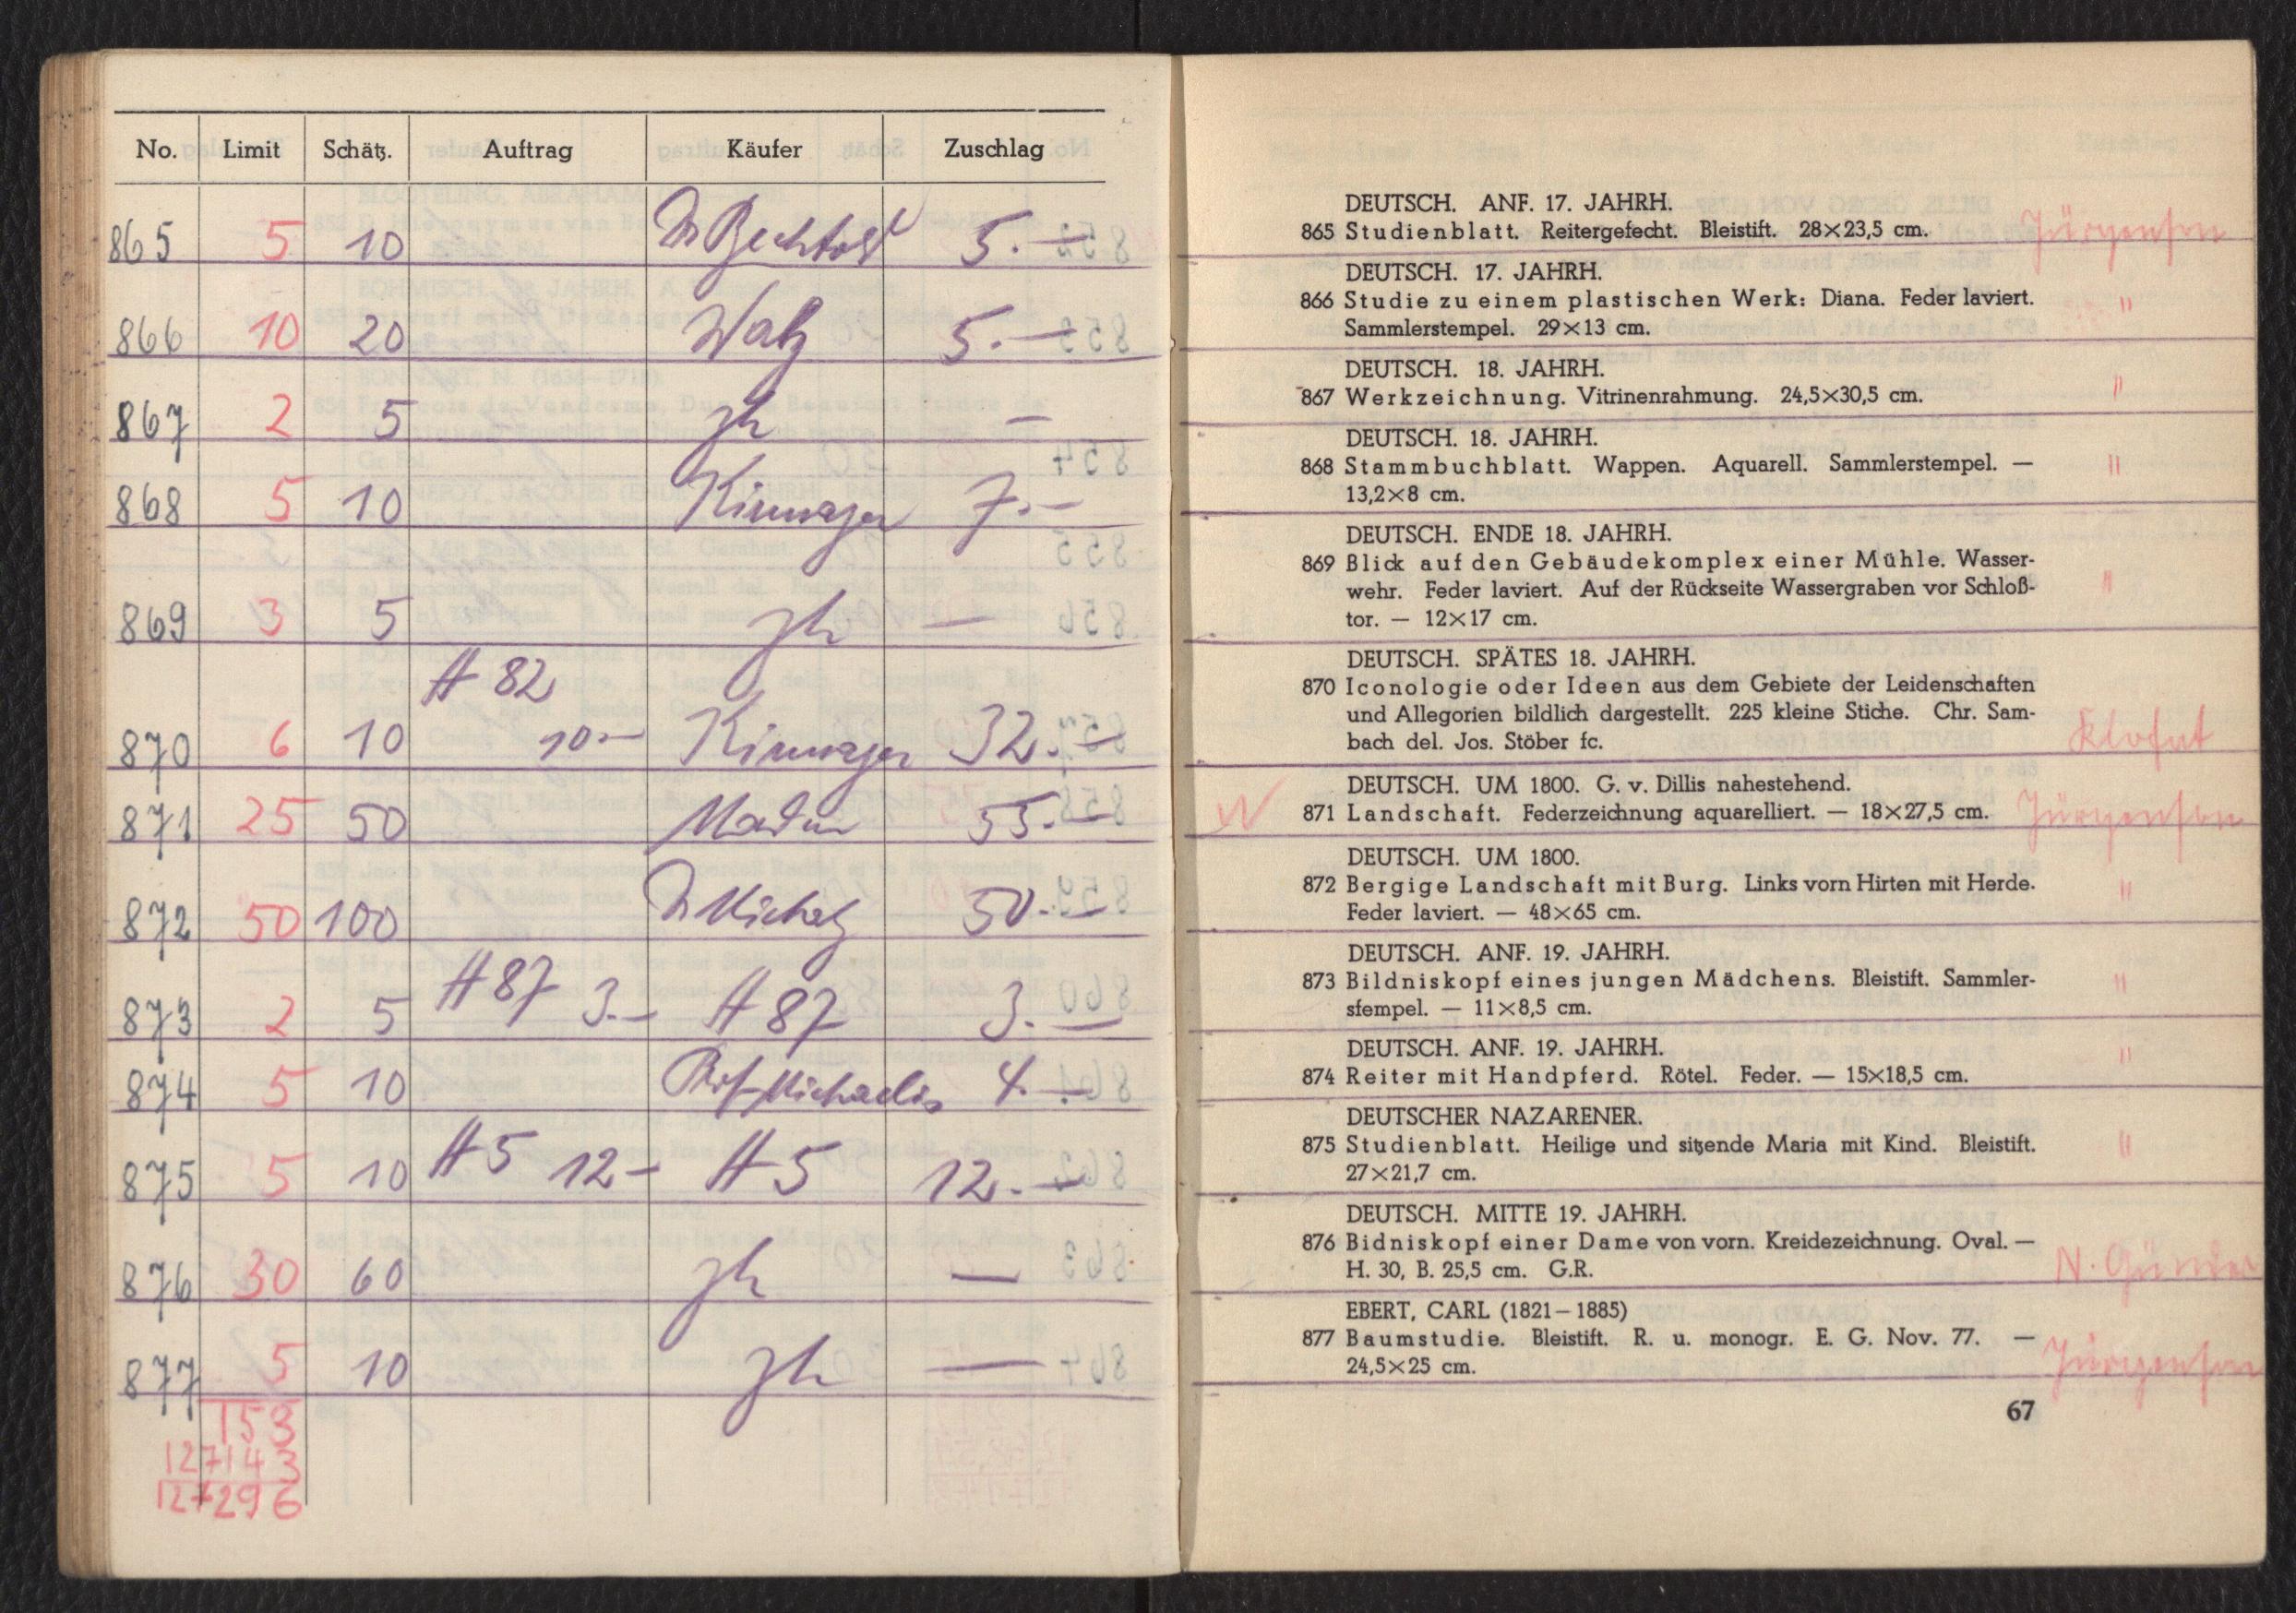 No. Limit Schätz. Auftrag Käufer Zuschlag
865 5 10 Dr Bechtold 5.—
866 10 20 Walz 5.—
867 2 5 zk —
868 5 10 7.—
869 3 5 zk —
# 82
870 6 10 10.— 32.—
871 25 50 55.—
872 50 100 Dr 50.—
873 2 5 # 87 3.— # 87 3.—
874 5 10 Prof Michaelis 4.—
875 5 10 # 5 12.— # 5 12.—
876 30 60 zk —
877 5 10 zk —
153
127143
127296
DEUTSCH. ANF. 17. JAHRH.
865 Studienblatt. Reitergefecht. Bleistift. 28×23,5 cm. Jürgensen
DEUTSCH. 17. JAHRH.
866 Studie zu einem plastischen Werk: Diana. Feder laviert. "
Sammlerstempel. 29×13 cm.
DEUTSCH. 18. JAHRH.
867 Werkzeichnung. Vitrinenrahmung. 24,5×30,5 cm. "
DEUTSCH. 18. JAHRH.
868 Stammbuchblatt. Wappen. Aquarell. Sammlerstempel. — "
13,2×8 cm.
DEUTSCH. ENDE 18. JAHRH.
869 Blick auf den Gebäudekomplex einer Mühle. Wasser-
wehr. Feder laviert. Auf der Rückseite Wassergraben vor Schloß- "
tor. — 12×17 cm.
DEUTSCH. SPÄTES 18. JAHRH.
870 Iconologie oder Ideen aus dem Gebiete der Leidenschaften
und Allegorien bildlich dargestellt. 225 kleine Stiche. Chr. Sam-
bach del. Jos. Stöber fc.
DEUTSCH. UM 1800. G. v. Dillis nahestehend.
871 Landschaft. Federzeichnung aquarelliert. — 18×27,5 cm. Jürgensen
DEUTSCH. UM 1800.
872 Bergige Landschaft mit Burg. Links vorn Hirten mit Herde. "
Feder laviert. — 48×65 cm.
DEUTSCH. ANF. 19. JAHRH.
873 Bildniskopf eines jungen Mädchens. Bleistift. Sammler- "
sfempel. — 11×8,5 cm.
DEUTSCH. ANF. 19. JAHRH. "
874 Reiter mit Handpferd. Rötel. Feder. — 15×18,5 cm.
DEUTSCHER NAZARENER.
875 Studienblatt. Heilige und sitzende Maria mit Kind. Bleistift. "
27×21,7 cm.
DEUTSCH. MITTE 19. JAHRH.
876 Bidniskopf einer Dame von vorn. Kreidezeichnung. Oval. —
H. 30, B. 25,5 cm. G.R. N.
EBERT, CARL (1821–1885)
877 Baumstudie. Bleistift. R. u. monogr. E. G. Nov. 77. —
24,5×25 cm. Jürgensen
67